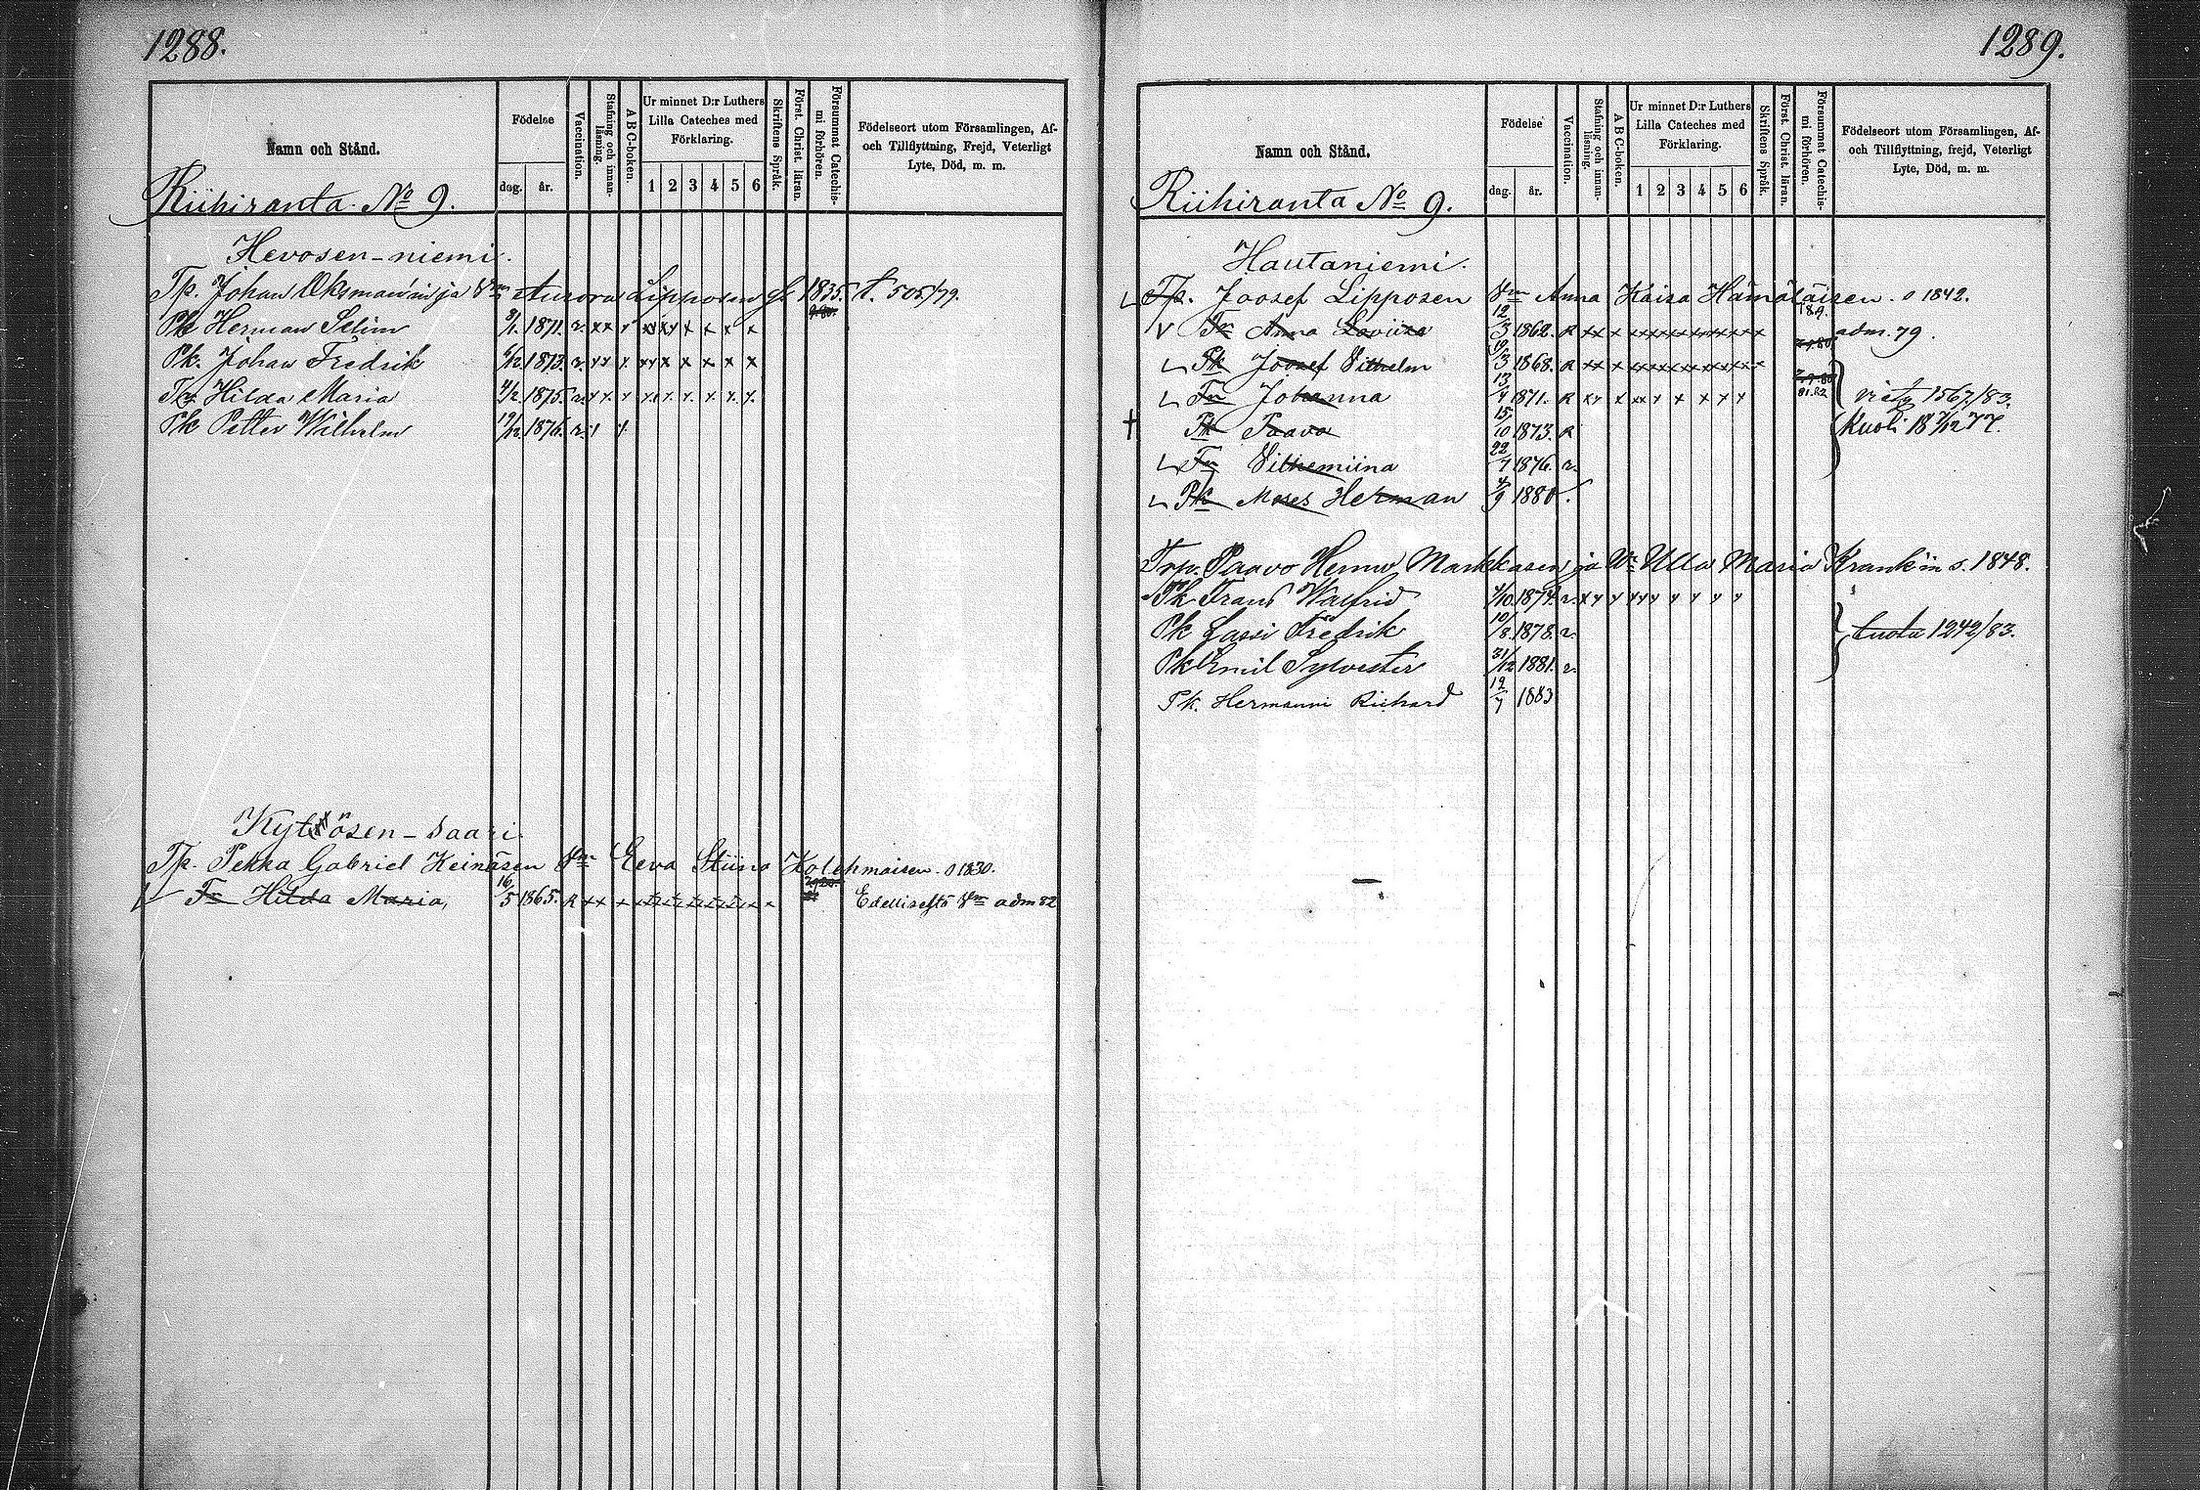 1288.
Namn och Stånd.
Födelse
dag. år.
Vaccination.
Stafning och innanläsning.
A B C-boken.
Ur minnet D:r Luthers Lilla Cateches med Förklaring.
1 2 3 4 5 6
Skriftens Språk.
Först. Christ. läran.
Försummat Catechismi förhören.
Födelseort utom Församlingen, Af- och Tillflyttning, Frejd, Veterligt Lyte, Död, m. m.
Riihiranta No 9.
Hevosen-niemi.
Tp. Johan Oksman'in ja Vmo Aurora Lipposen 1835. t. 505/79.
Pk Herman Selim 8/1. 1871. r. x x x x x x x x x
Pk. Johan Fredrik 6/12. 1873. r. x x x x x x x x x
Tr Hilda Maria 4/2. 1875. r. x x x x x x x x x
Pk Petter Wilhelm 17/12 1876. r. x x
Kytösen-saari.
Tp. Pekka Gabriel Keinäsen Vmo Eeva Stiina Kolehmaisen. o 1830.
Tr Hilda Maria, 16/5 1865. R x x x Edellisestä Vmo adm 82
1289.
Namn och Stånd.
Födelse
dag. år.
Vaccination.
Stafning och innanläsning.
A B C-boken.
Ur minnet D:r Luthers Lilla Cateches med Förklaring.
1 2 3 4 5 6
Skriftens Språk.
Först. Christ. läran.
Försummat Catechismi förhören.
Födelseort utom Församlingen, Af- och Tillflyttning, frejd, Veterligt Lyte, Död, m. m.
Riihiranta No 9.
Hautaniemi.
Tp. Joosef Lipposen Vmo Anna Kaisa Hämäläisen. o 1842.
Tr Anna Loviisa 12/3 1862. R x x x adm. 79.
Pk Joosef Vilhelm 19/3 1868. R x x x
Tr Johanna 13/4 1871. R x x x x x x x x x viety 1567/83.
Pk Paavo 15/10 1873. R Kuoli 18 7/12 77.
Tr Vilhemiina 22/7 1876. r.
Pk Moses Herman 4/9 1880.
Trp. Paavo Henrw Markkasen ja Wo Ulla Maria Krank'in s. 1848.
Pk Frans Walfrid 4/10. 1874. r. x x x x x x x x x
Pk Lassi Fredrik 10/8. 1878. r. tuotu 1242/83.
Pk Emil Sylvester 31/12 1881. r.
Pk. Hermanni Richard 19/7 1883